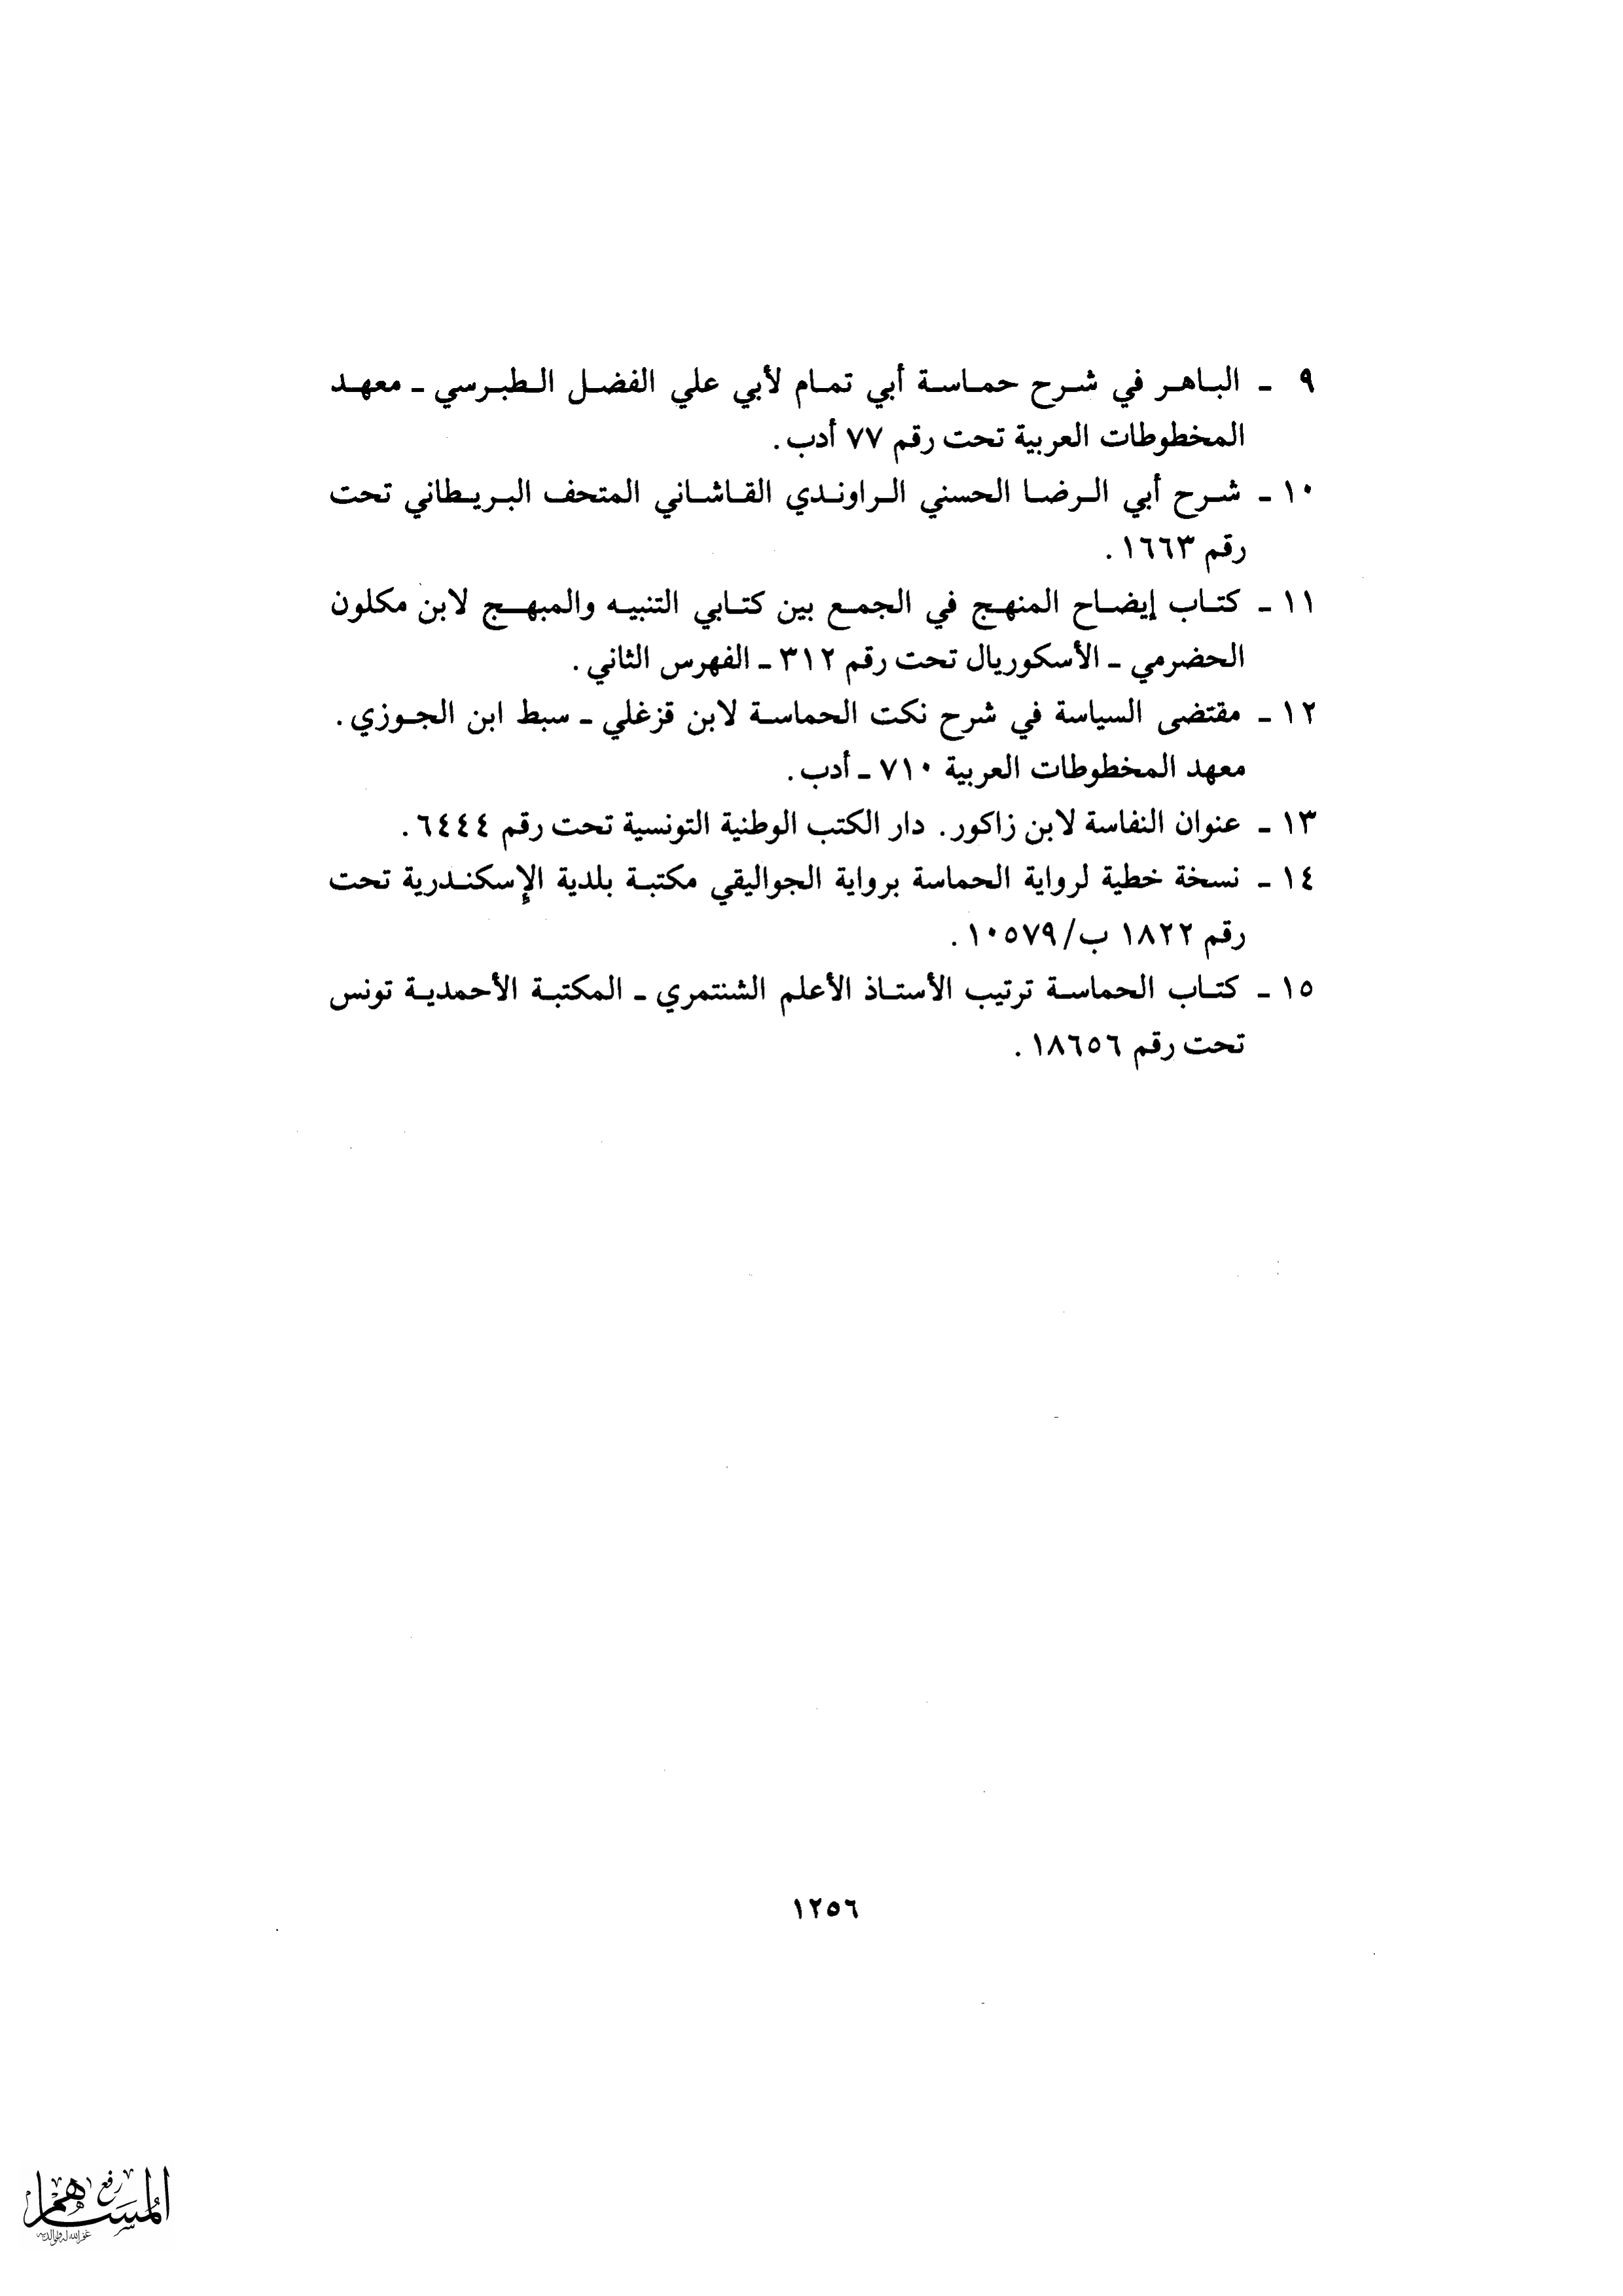 ٩ ـ الباهر في شرح حماسة أبي تمام لأبي علي الفضل الطبرسي ـ معهد
المخطوطات العربية تحت رقم ٧٧ أدب.
١٠ ـ شرح أبي الرضا الحسني الراوندي القاشاني المتحف البريطاني تحت
رقم ١٦٦٣.
١١ ـ كتاب إيضاح المنهج في الجمع بين كتابي التنبيه والمبهج لابن مكلون
الحضرمي ـ الأسكوريال تحت رقم ٣١٢ ـ الفهرس الثاني.
١٢ ـ مقتضى السياسة في شرح نكت الحماسة لابن قزغلي ـ سبط ابن الجوزي.
معهد المخطوطات العربية ٧١٠ ـ أدب.
١٣ ـ عنوان النفاسة لابن زاكور. دار الكتب الوطنية التونسية تحت رقم ٦٤٤٤.
١٤ ـ نسخة خطية لرواية الحماسة برواية الجواليقي مكتبة بلدية الإسكندرية تحت
رقم ١٨٢٢ ب/١٠٥٧٩.
١٥ ـ كتاب الحماسة ترتيب الأستاذ الأعلم الشنتمري ـ المكتبة الأحمدية تونس
تحت رقم ١٨٦٥٦.
١٢٥٦
رفع
غفر الله له ولوالديه